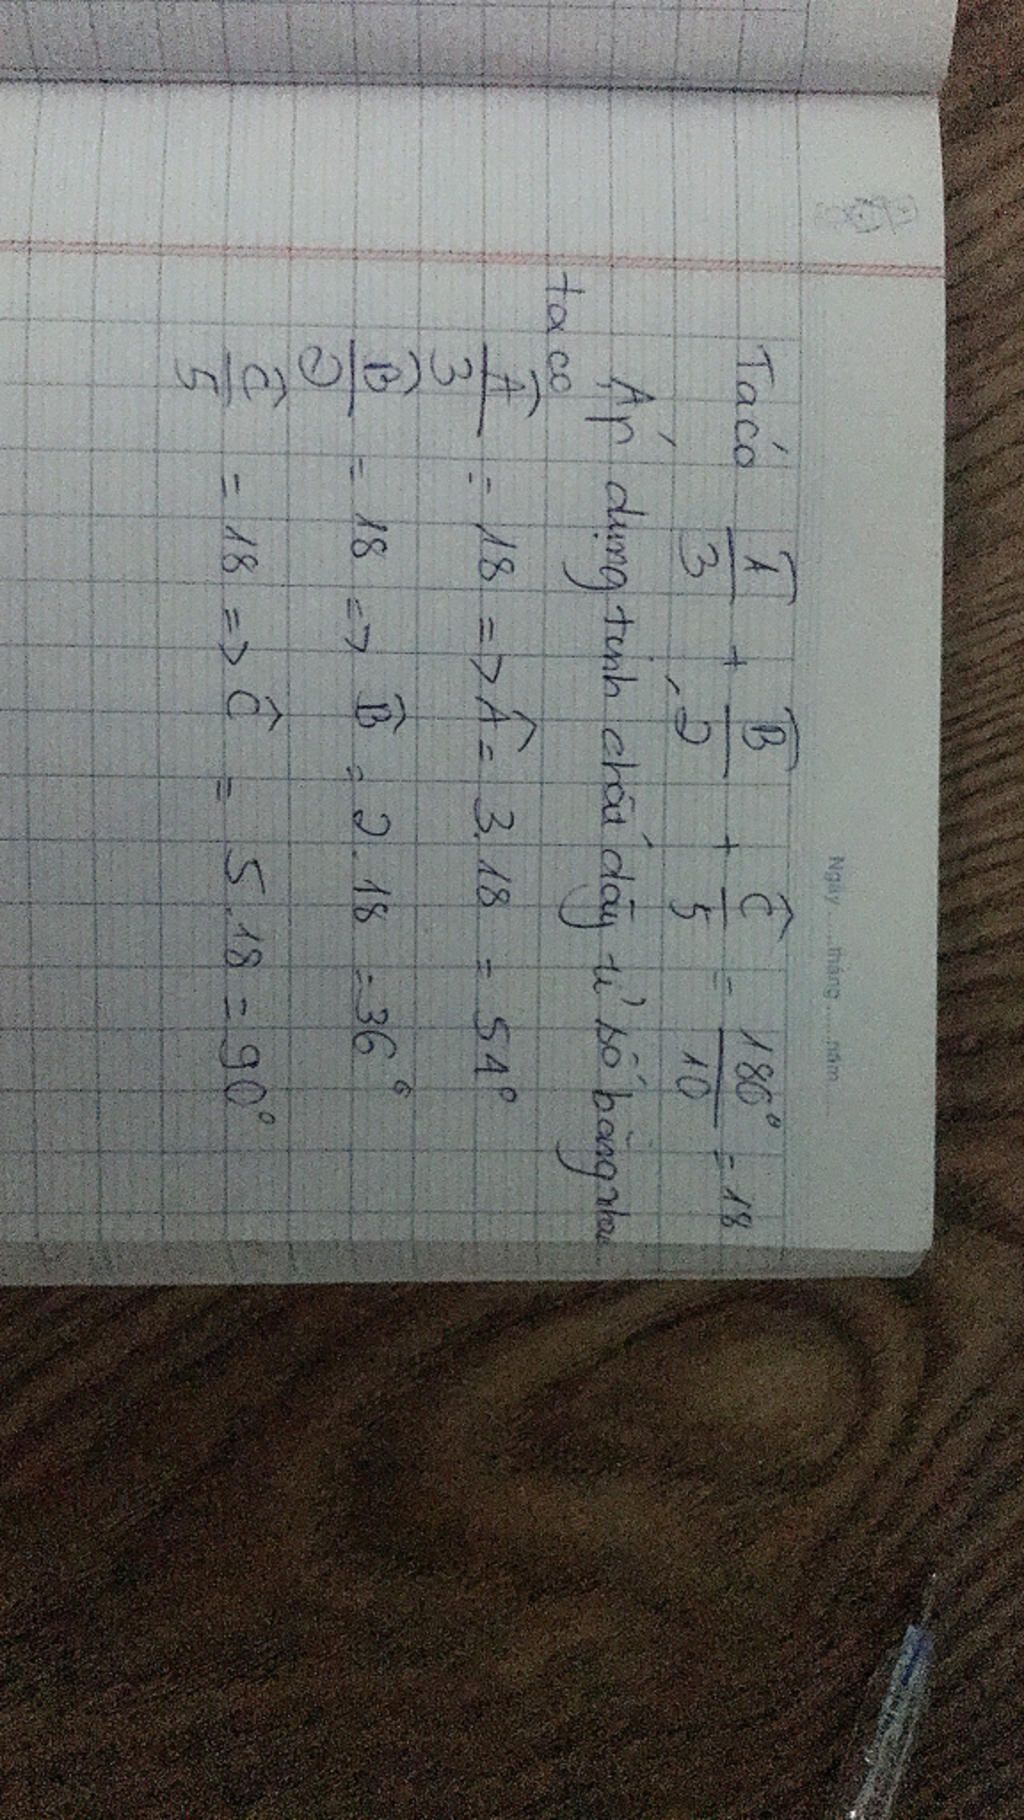 Ngày ...... tháng ...... năm ......
Ta có Â/3 + B̂/2 + Ĉ/5 = 180°/10 = 18
Áp dụng tính chất dãy tỉ số bằng nhau
ta có
Â/3 = 18 => Â = 3.18 = 54°
B̂/2 = 18 => B̂ = 2.18 = 36°
Ĉ/5 = 18 => Ĉ = 5.18 = 90°